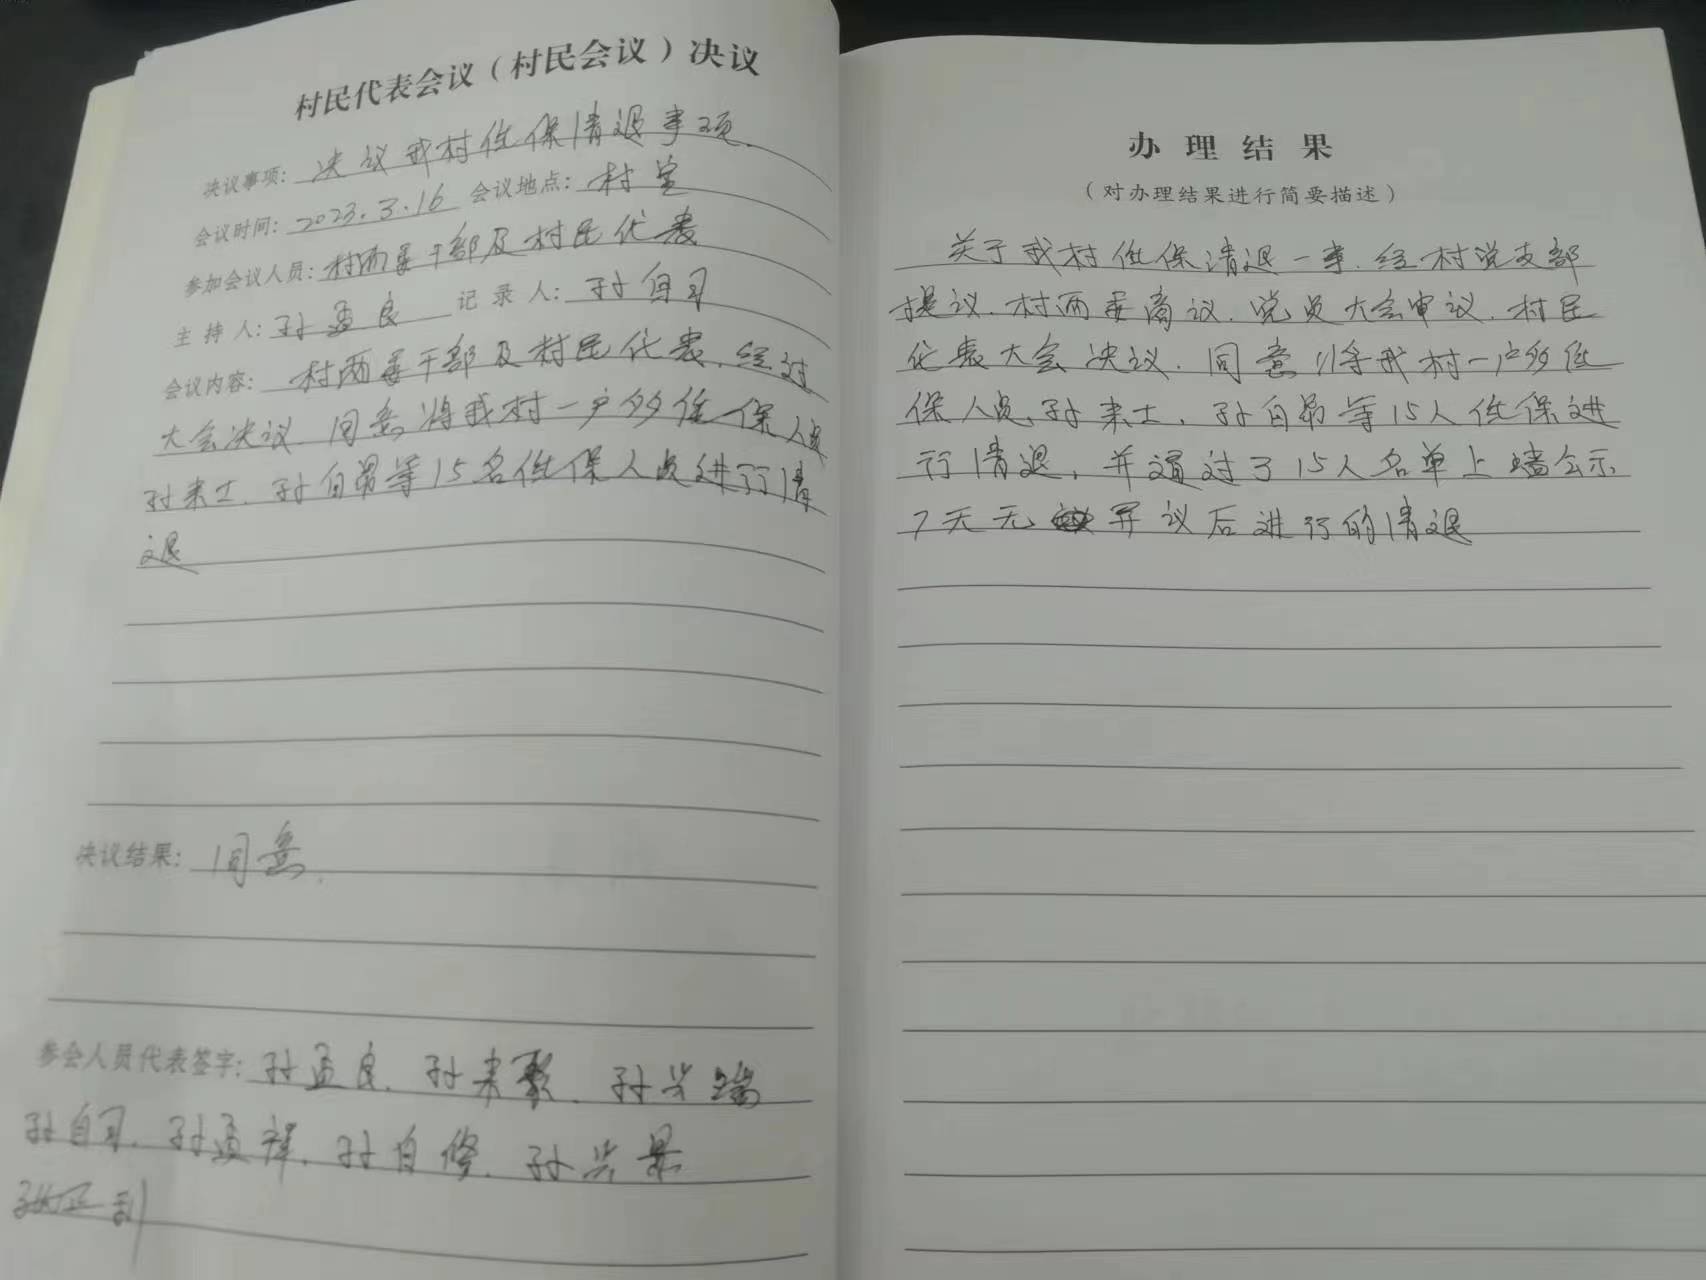 村民代表会议（村民会议）决议
决议事项：决议我村低保清退事项.
会议时间：2023.3.16 会议地点：村室
参加会议人员：村两委干部及村民代表
主持人：孙孟良 记录人：孙自习
会议内容：村两委干部及村民代表，经过
大会决议，同意将我村一户多低保人员
孙来士、孙自昂等15名低保人员进行清
退
决议结果：同意.
参会人员代表签字：孙孟良、孙来聚、孙兴端
孙自习、孙孟祥、孙自修、孙兴景
办理结果
（对办理结果进行简要描述）
关于我村低保清退一事，经村党支部
提议，村两委商议，党员大会审议，村民
代表大会决议，同意将我村一户多低
保人员，孙来士，孙自昂等15人低保进
行清退，并通过了15人名单上墙公示
7天无异议后进行的清退